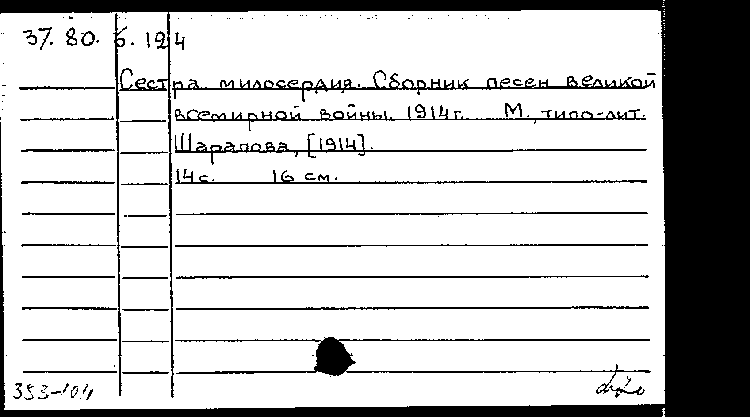 37. 80. 6. 124
Сестра милосердия. Сборник песен великой
всемирной войны 1914г. М., типо-лит.
Шарапова, [1914].
14 с. 16 см.
353-104